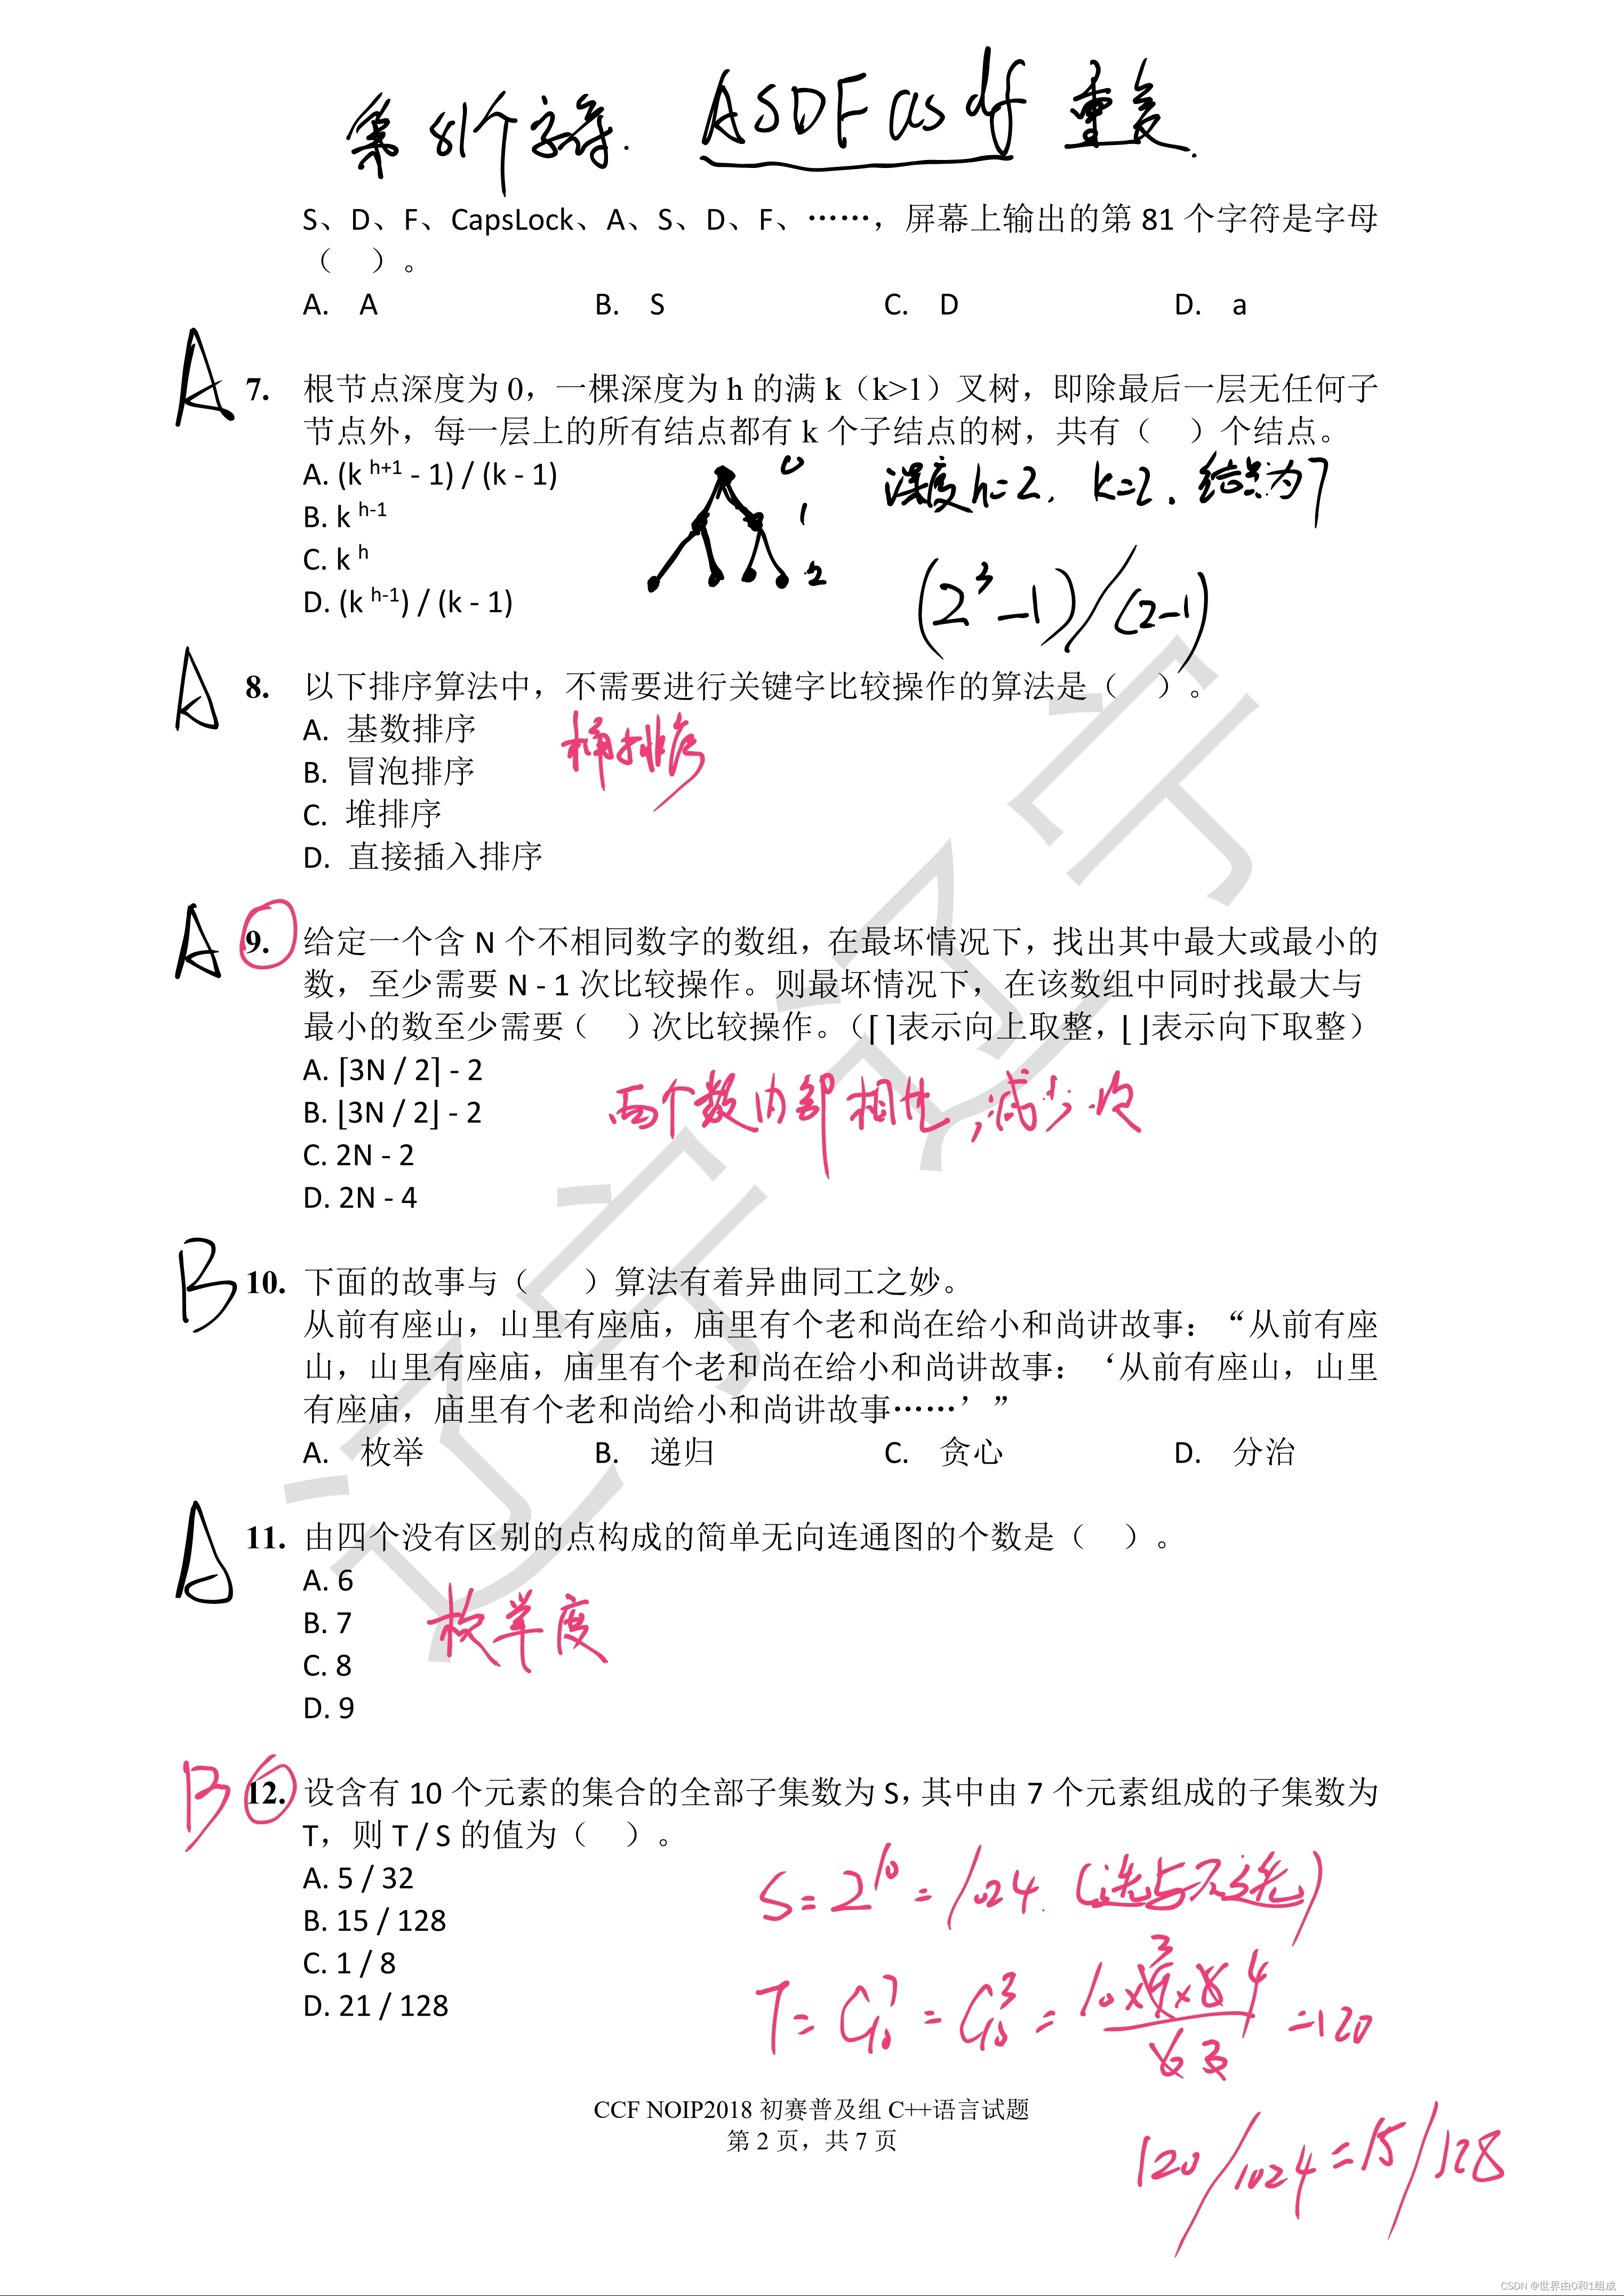 第81个字符. ASDFasdf 重复.
S、D、F、CapsLock、A、S、D、F、……，屏幕上输出的第 81 个字符是字母
（ ）。
A. A B. S C. D D. a
A 7. 根节点深度为 0，一棵深度为 h 的满 k（k>1）叉树，即除最后一层无任何子
节点外，每一层上的所有结点都有 k 个子结点的树，共有（ ）个结点。
A. (k h+1 - 1) / (k - 1)
0 深度h=2, k=2. 结点为7
B. k h-1
1
C. k h
2
D. (k h-1) / (k - 1)
(2^3-1)/(2-1)
A 8. 以下排序算法中，不需要进行关键字比较操作的算法是（ ）。
A. 基数排序
桶排序
B. 冒泡排序
C. 堆排序
D. 直接插入排序
A 9. 给定一个含 N 个不相同数字的数组，在最坏情况下，找出其中最大或最小的
数，至少需要 N - 1 次比较操作。则最坏情况下，在该数组中同时找最大与
最小的数至少需要（ ）次比较操作。（⌈ ⌉表示向上取整，⌊ ⌋表示向下取整）
A. ⌈3N / 2⌉ - 2
B. ⌊3N / 2⌋ - 2
两个数内部相比，减少次
C. 2N - 2
D. 2N - 4
B 10. 下面的故事与（ ）算法有着异曲同工之妙。
从前有座山，山里有座庙，庙里有个老和尚在给小和尚讲故事：“从前有座
山，山里有座庙，庙里有个老和尚在给小和尚讲故事：‘从前有座山，山里
有座庙，庙里有个老和尚给小和尚讲故事……’”
A. 枚举 B. 递归 C. 贪心 D. 分治
A 11. 由四个没有区别的点构成的简单无向连通图的个数是（ ）。
A. 6
B. 7
枚举度
C. 8
D. 9
B 12. 设含有 10 个元素的集合的全部子集数为 S，其中由 7 个元素组成的子集数为
T，则 T / S 的值为（ ）。
A. 5 / 32
S=2^10=1024. (选与不选)
B. 15 / 128
C. 1 / 8
D. 21 / 128
T=C₁₀⁷=C₁₀³=10×9 3×8 4/6 3=120
CCF NOIP2018 初赛普及组 C++语言试题
第 2 页，共 7 页
120/1024=15/128
辽宁
辽宁
CSDN @世界由0和1组成